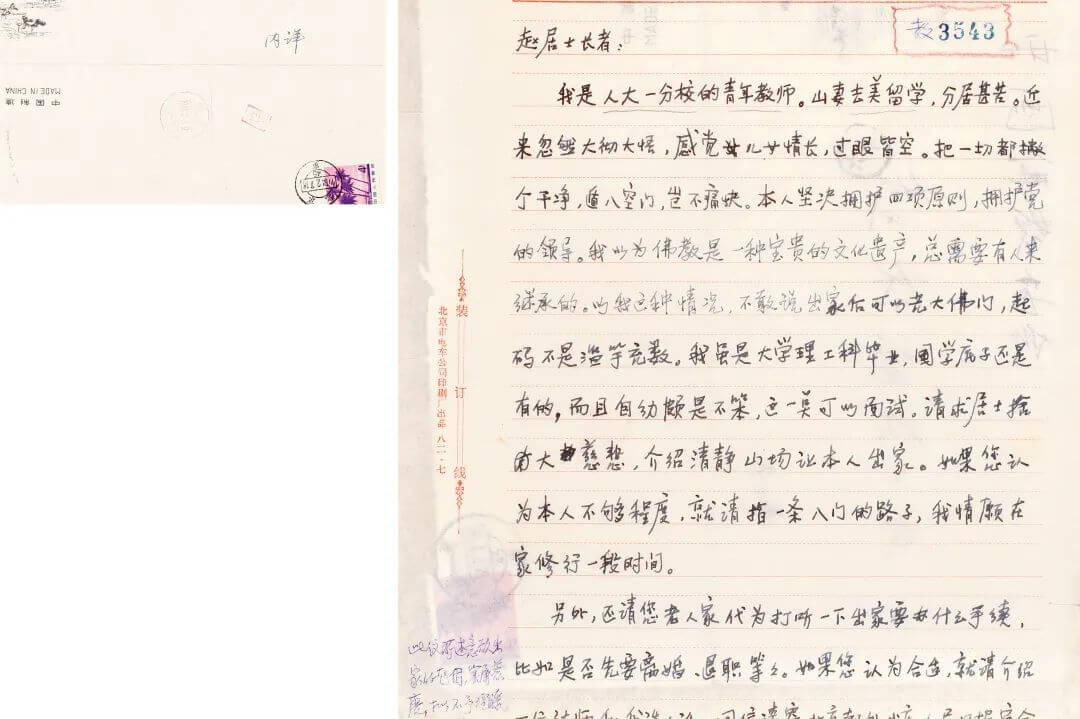 内详
中国制造
MADE IN CHINA
教3543
赵居士长者：
我是人大一分校的青年教师。山妻去美留学，分居甚苦。近
来忽然大彻大悟，感觉儿女情长，过眼皆空。把一切都撇
个干净，遁入空门，岂不痛快。本人坚决拥护四项原则，拥护党
的领导。我以为佛教是一种宝贵的文化遗产，总需要有人来
继承的。以我这种情况，不敢说出家后可以光大佛门，起
码不是滥竽充数。我虽是大学理工科毕业，国学底子还是
有的，而且自幼颇是不笨，这一点可以面试。请求居士捨
大慈悲，介绍清静山场让本人出家。如果您认
为本人不够程度，就请指一条入门的路子，我情愿在
家修行一段时间。
另外，还请您老人家代为打听一下出家要办什么手续，
比如是否先要离婚、退职等等。如果您认为合适，就请介绍
装订线
北京市电车公司印刷厂出品 八二·七